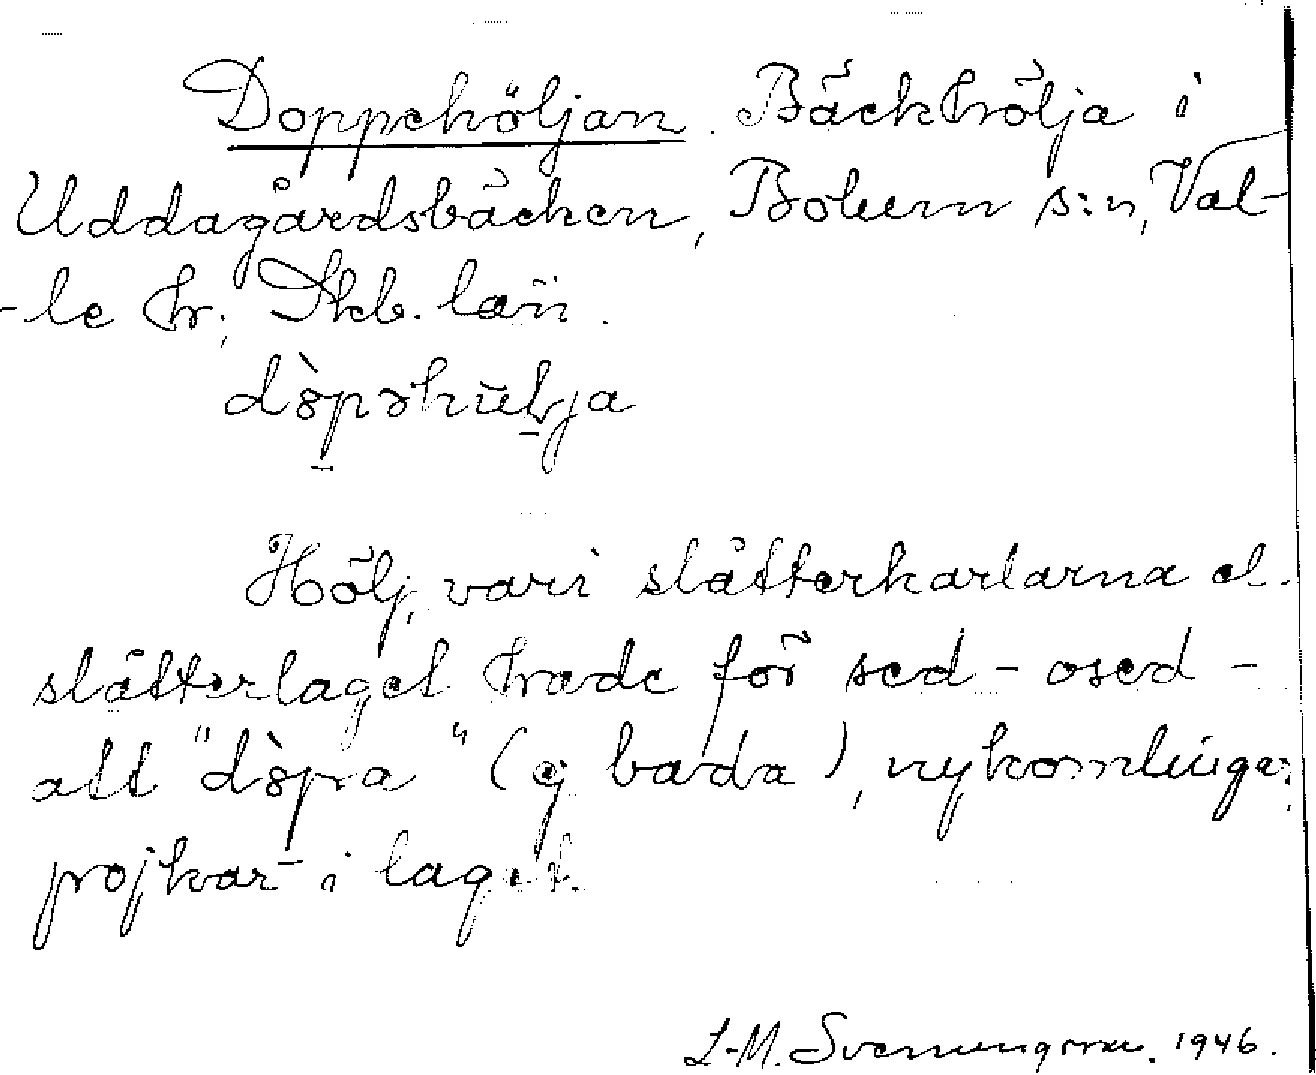 Doppehöljan. Bäckhölja i
Uddagårdsbäcken, Bolum s:n, Val-
-le hr; Skb. län.
dòpəhüljа
Hölj, vari slåtterkarlarna el.
slåtterlaget hade för sed - osed -
att "döpa" (ej bada), nykomlingar,
pojkar i laget.
L-M. Svenungsson. 1946.